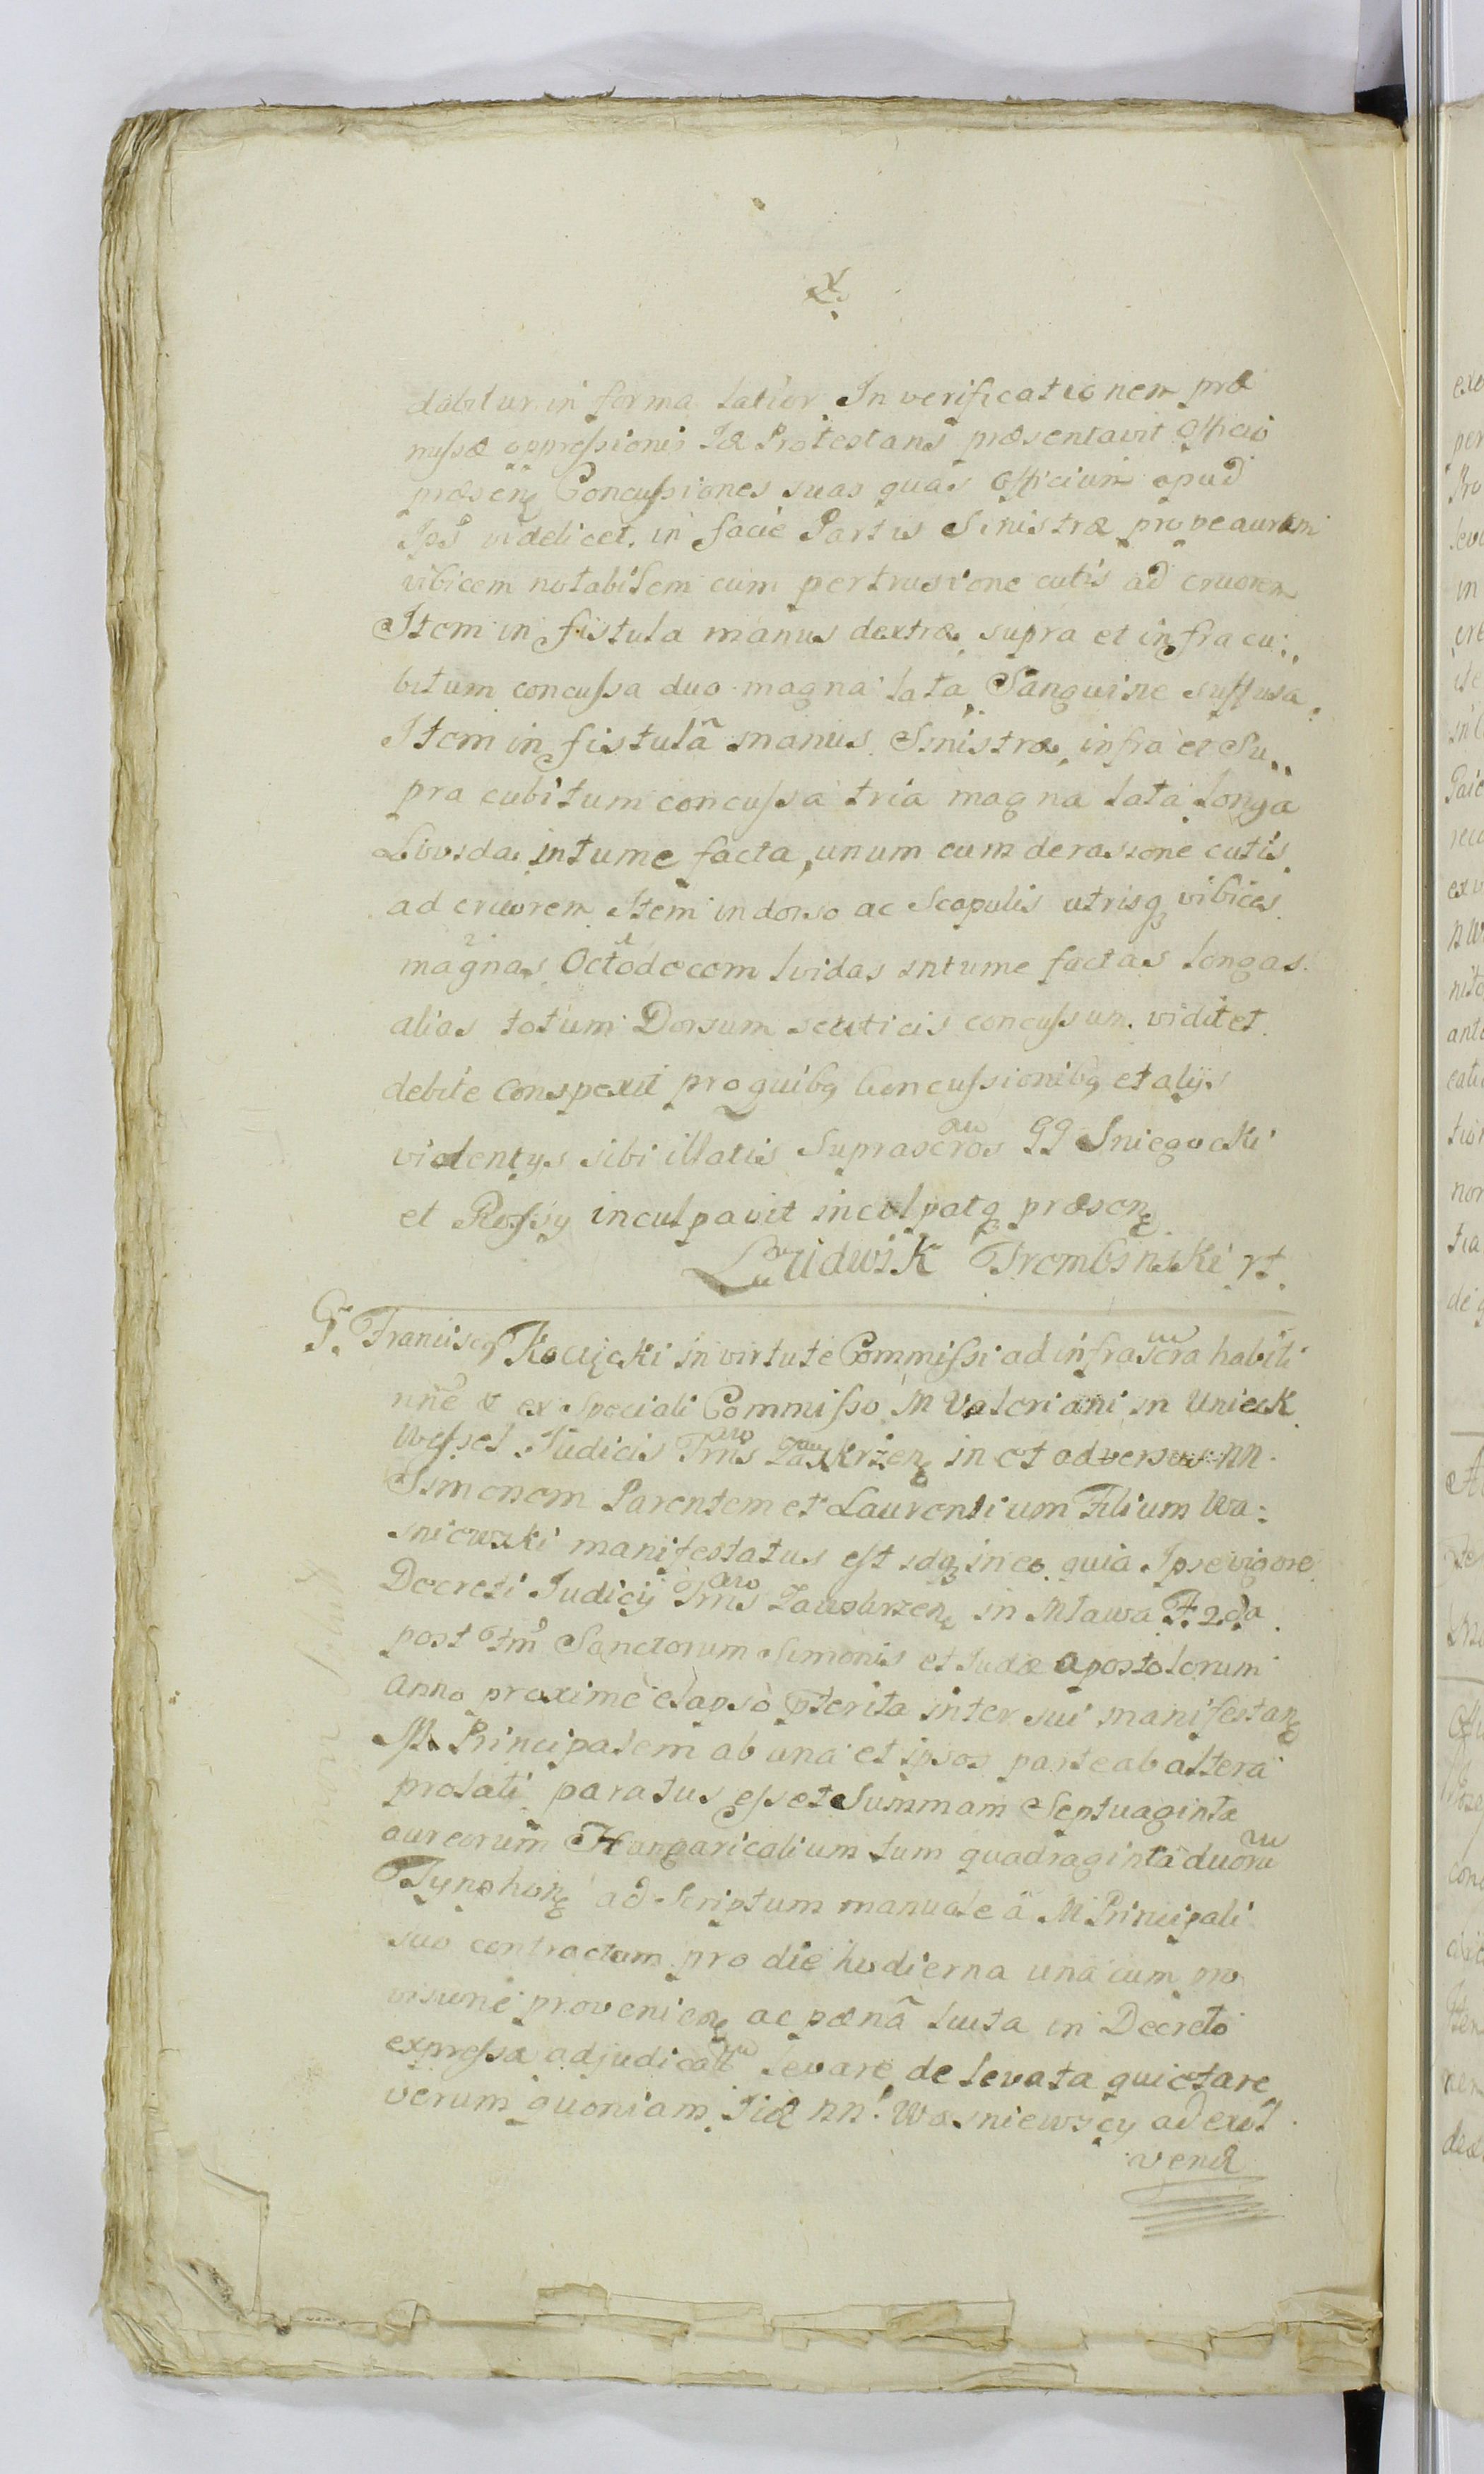 dabitur in forma latior. In verificationem præ
missæ oppressionis Id Protestans præsentavit Officio
præsen Concussiones suas quas Officium apud
Ips videlicet. in facie Partis Sinistræ prope aurem
vibicem notabilem cum pertrusione cutis ad cruorem
Item in fistula manus dextræ, supra et infra cu:,
bitum concussa duo magna lata, Sanguine suffusa,
Item in fistulã manus Sinistræ, infra et Su,,
pra cubitum concussa tria magna lata longa
Livida, intume facta, unum cum derasione cutis
ad cruorem Item in dorso ac Scapulis utrisq vibices
magnas Octodecem lividas intume factas longas
alias totum Dorsum scuticis concussum. vidit et
debite conspexit pro quibq Concussionibq et alijs
violentys sibi illatis Suprascros GG Sniegocki
et Rossy inculpavit inculpatq præsen
Ludwik Trombinski rt.
G. Franciscq Kocięcki in virtute Commissi ad infrascra habiti
nne & ex speciali Commisso M Valeriani in Unieck
Wessel Judicis Trris Zawkrżen in et adversus NN
Simonem Parentem et Laurentium Filium Wa:
sniewski manifestatus est idq in eo quia Ipse vigore
Decreti Judicij Trris Zawkrzen in Mlawa F. 2da
post Fm Sanctorum Simonis et Judæ apostolorum
Anno proximè elapso pterita inter sui manifestan
M Principalem ab una et ipsos parte ab altera
prolati paratus esset Summam Septuaginta
aureorum Hungaricalium tum quadraginta duoru
Tynphon ad Scriptum manuale à M Principali
suo contractam pro die hodierna una cum pro
visione provenien ac pænã luita in Decreto
expressa adjudicat levare de levata quietare
verum quoniam Iid NN. Wasniewscy ad exol
vend